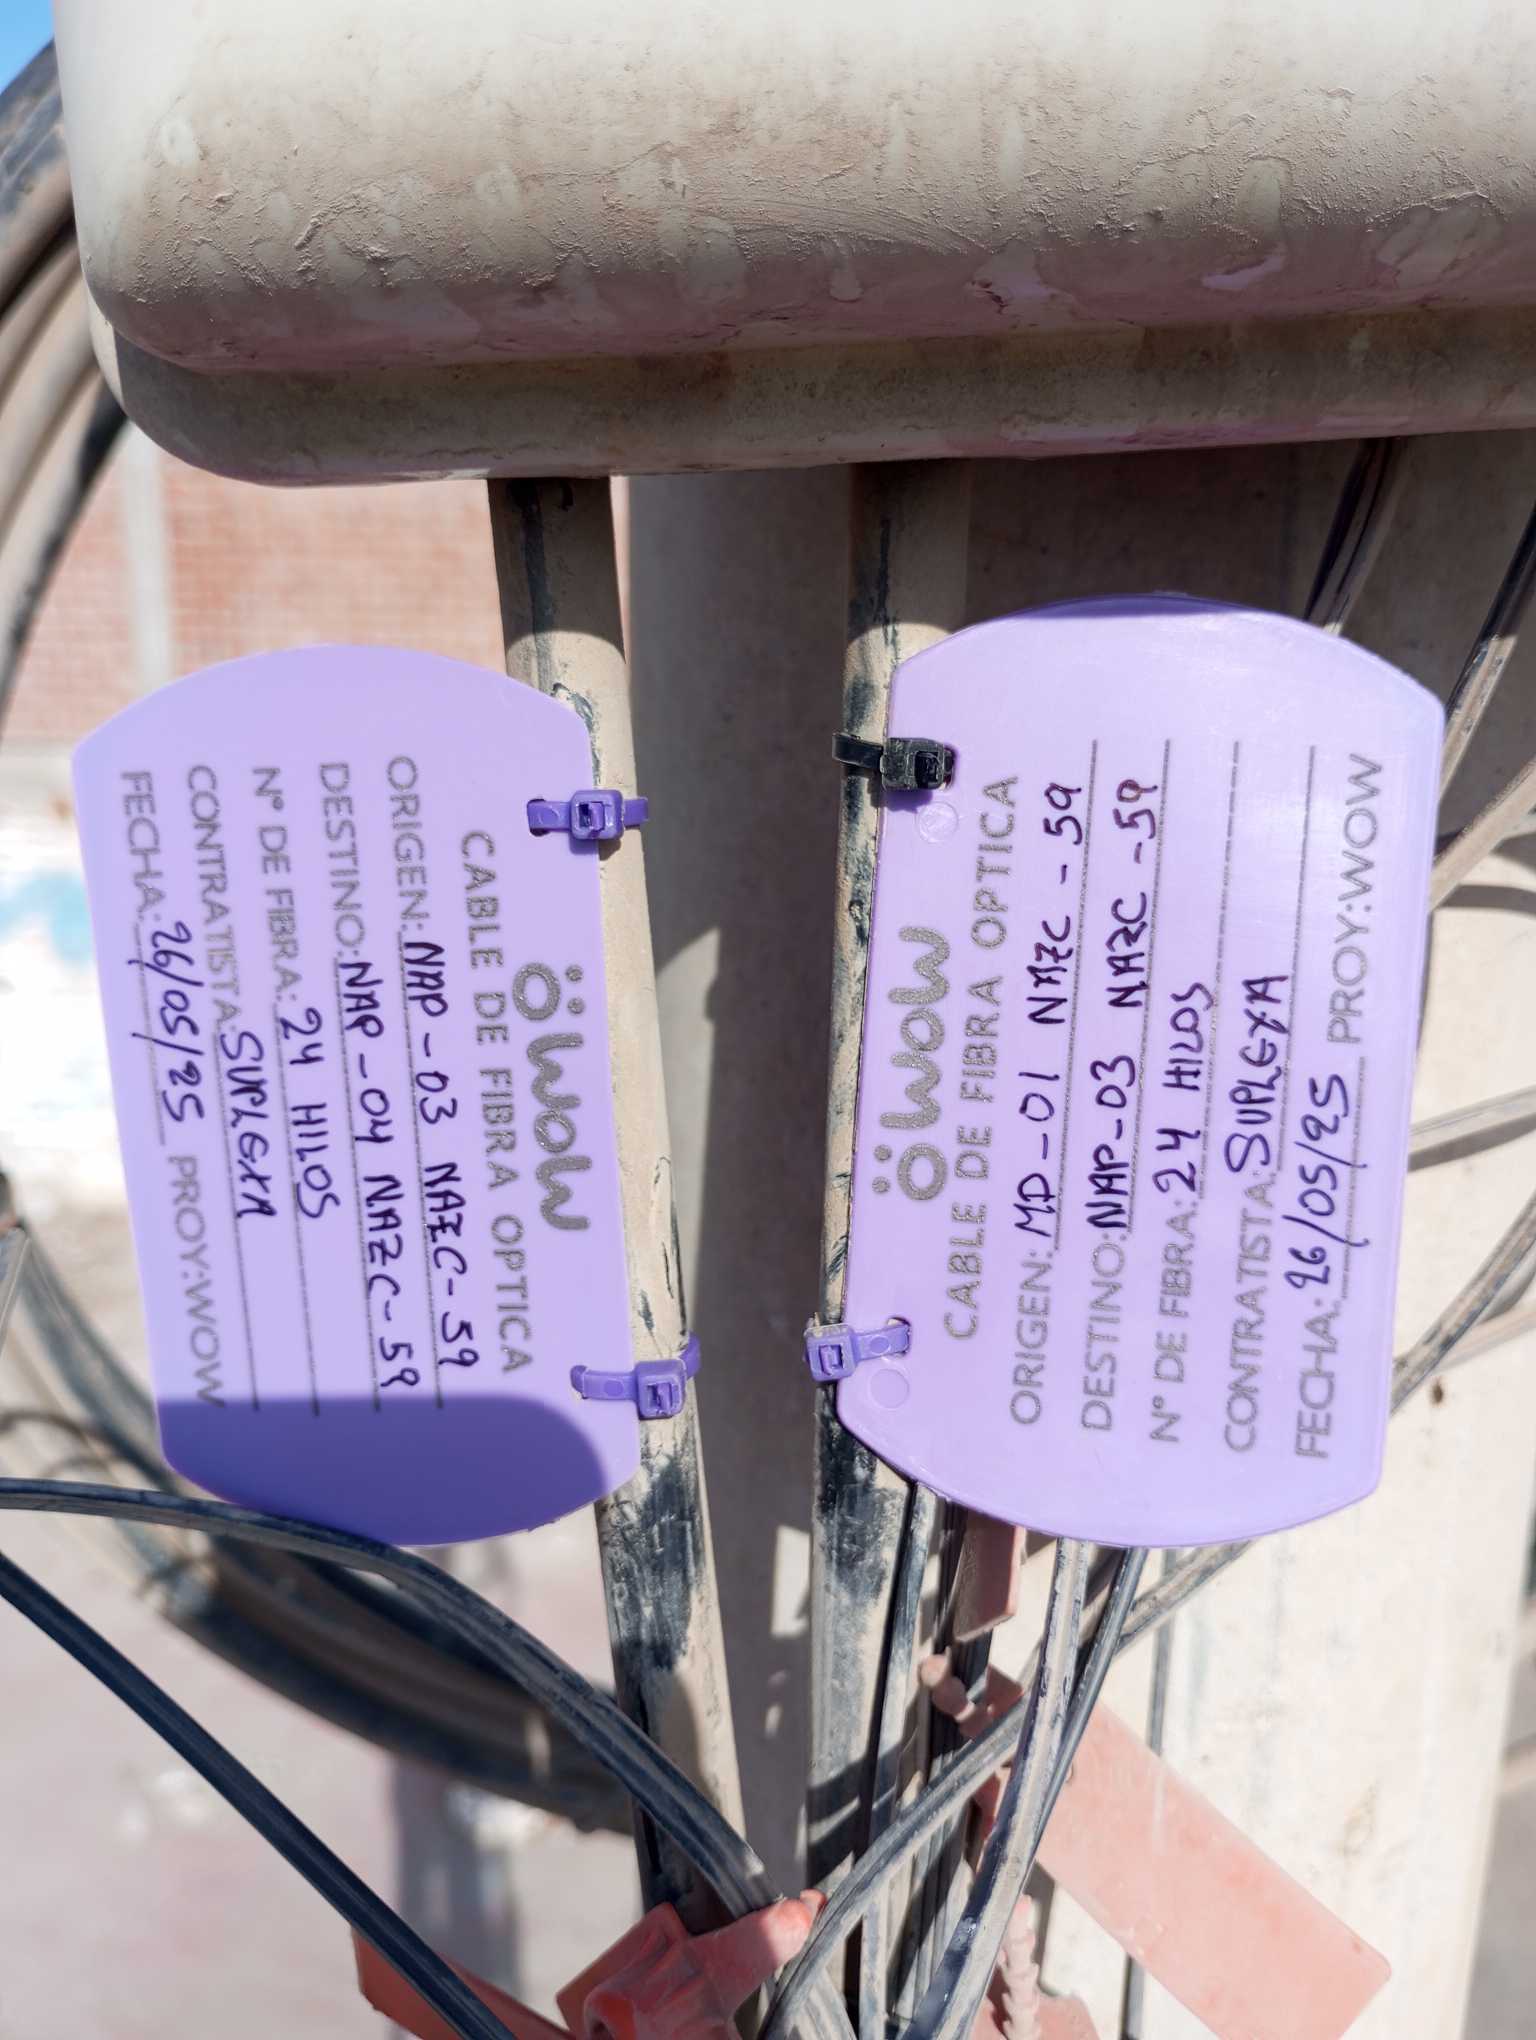 wow
CABLE DE FIBRA OPTICA
ORIGEN: NAP-03 NAZC-59
DESTINO: NAP-04 NAZC-59
N° DE FIBRA: 24 HILOS
CONTRATISTA: SUPLEXA
FECHA: 26/05/25 PROY:WOW
wow
CABLE DE FIBRA OPTICA
ORIGEN: MP-01 NAZC-59
DESTINO: NAP-03 NAZC-59
N° DE FIBRA: 24 HILOS
CONTRATISTA: SUPLEXA
FECHA: 26/05/25 PROY:WOW